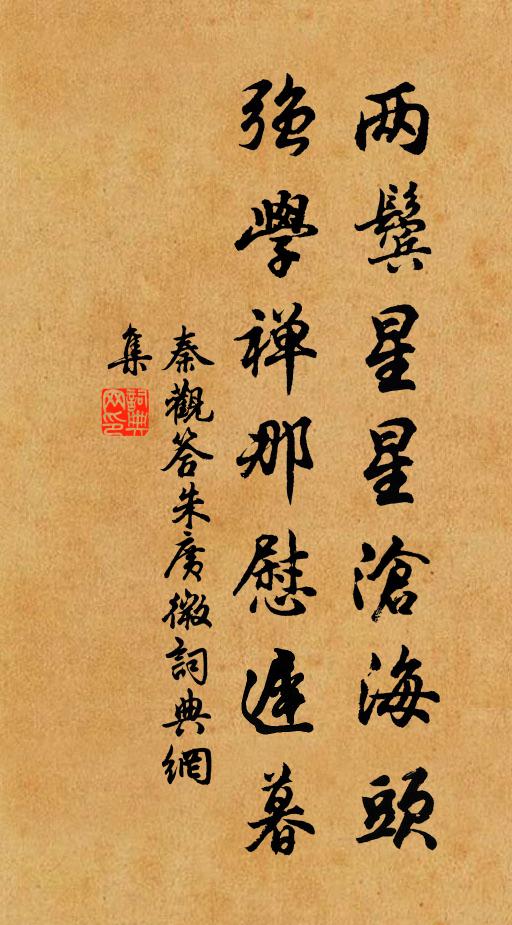 两鬓星星滄海頭
強學禅那慰遲暮
秦觀答朱廣微詞典網
集
詞典
网印